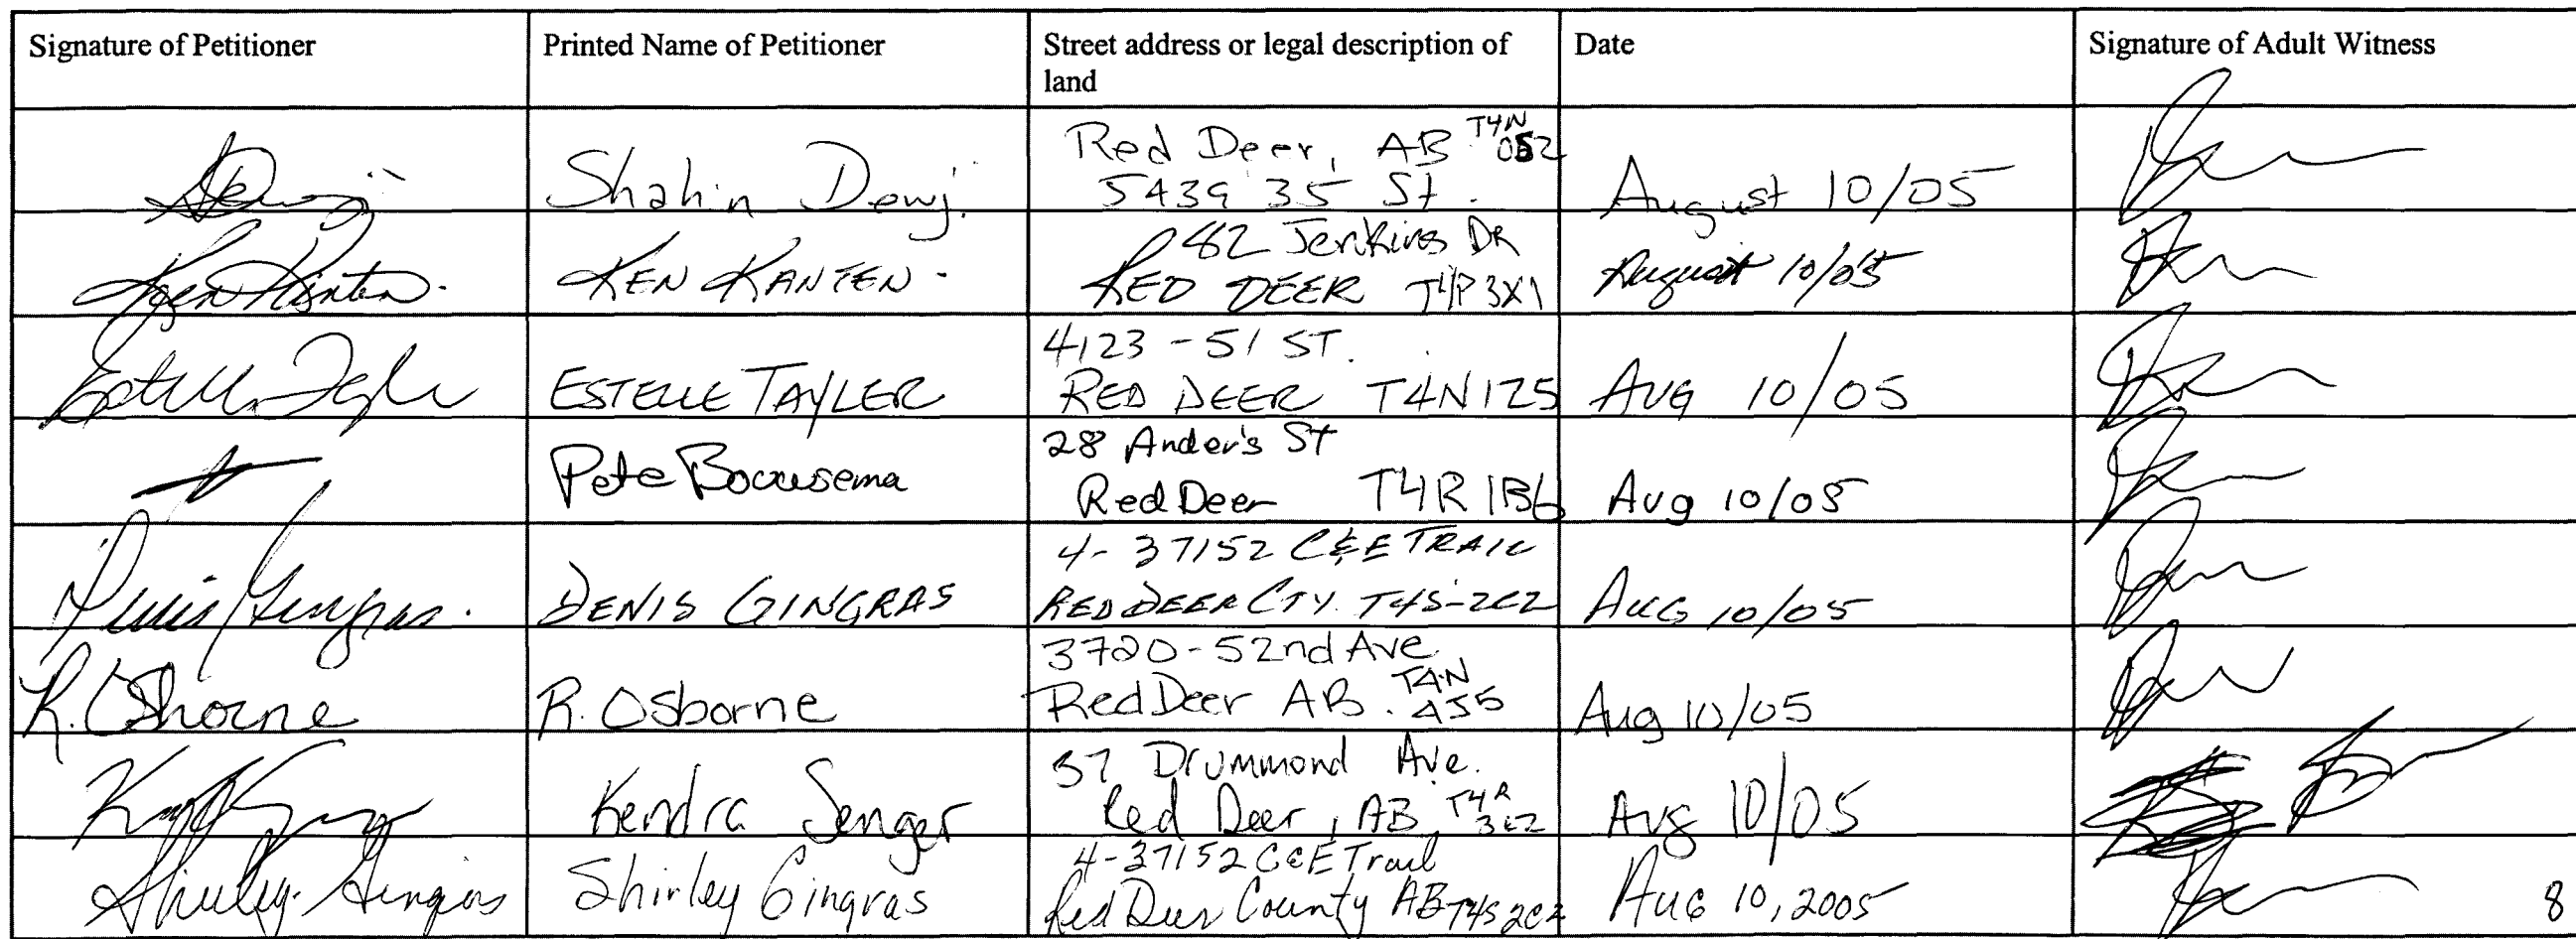 Signature of Petitioner
Printed Name of Petitioner
Street address or legal description of
land
Date
Signature of Adult Witness
Shahin Dewji
Red Deer, AB T4N
5439 35 St.
August 10/05
Ken Kanten.
KEN KANTEN.
82 Jenkins DR
RED DEER T4P 3X1
August 10/05
ESTELLE TAYLER
4123 - 51 ST.
RED DEER T4N 1Z5
AUG 10/05
Pete
28 Ander's St
Red Deer T4R 1B6
Aug 10/05
Denis Gingras.
DENIS GINGRAS
4- 37152 C&E TRAIL
RED DEER CTY. T4S-2C2
AUG 10/05
R. Osborne
R. Osborne
3720-52nd Ave
Red Deer AB. T4N
4J5
Aug 10/05
Kendra Senger
37 Drummond Ave.
Red Deer, AB, T4R
Aug 10/05
Shirley Gingras
Shirley Gingras
4-37152 C&E Trail
Red Deer County AB T4S 2C2
AUG 10, 2005
8